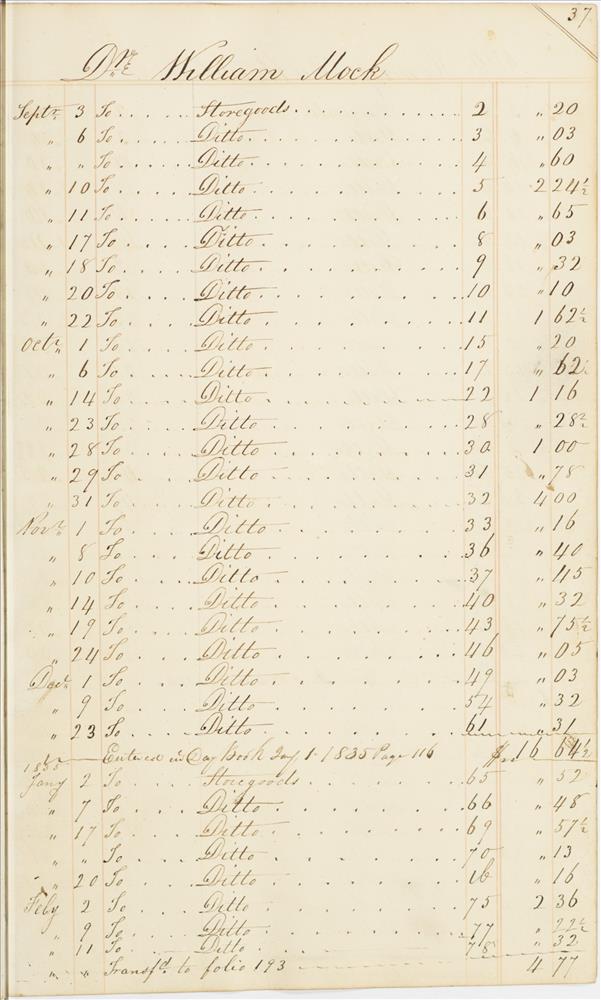 37
Dr. William Mock
Septr. 3 To Storegoods 2 " 20
" 6 To Ditto 3 " 03
" " To Ditto 4 " 60
" 10 To Ditto 5 2 24½
" 11 To Ditto 6 " 65
" 17 To Ditto 8 " 03
" 18 To Ditto 9 " 32
" 20 To Ditto 10 " 10
" 22 To Ditto 11 1 62½
Octr. 1 To Ditto 15 " 20
" 6 To Ditto 17 " 62
" 14 To Ditto 22 1 16
" 23 To Ditto 28 " 28
" 28 To Ditto 30 1 00
" 29 To Ditto 31 " 78
" 31 To Ditto 32 4 00
Novr. 1 To Ditto 33 " 16
" 8 To Ditto 36 " 40
" 10 To Ditto 37 " 45
" 14 To Ditto 40 " 32
" 19 To Ditto 43 " 75½
" 24 To Ditto 46 " 05
Decr. 1 To Ditto 49 " 03
" 9 To Ditto 54 " 32
" 23 To Ditto 61 " 31
Entered in Day Book Jay 1 1835 Page 116 $ 16 64½
1835
Jany 2 To Storegoods 65 " 52
" 7 To Ditto 66 " 48
" 17 To Ditto 69 " 57½
" " To Ditto 70 " 13
" 20 To Ditto 16 " 16
Feby 2 To Ditto 75 2 36
" 9 To Ditto 77 " 22½
" 11 To Ditto 78 " 32
" " Transfd. to folio 193 4 77